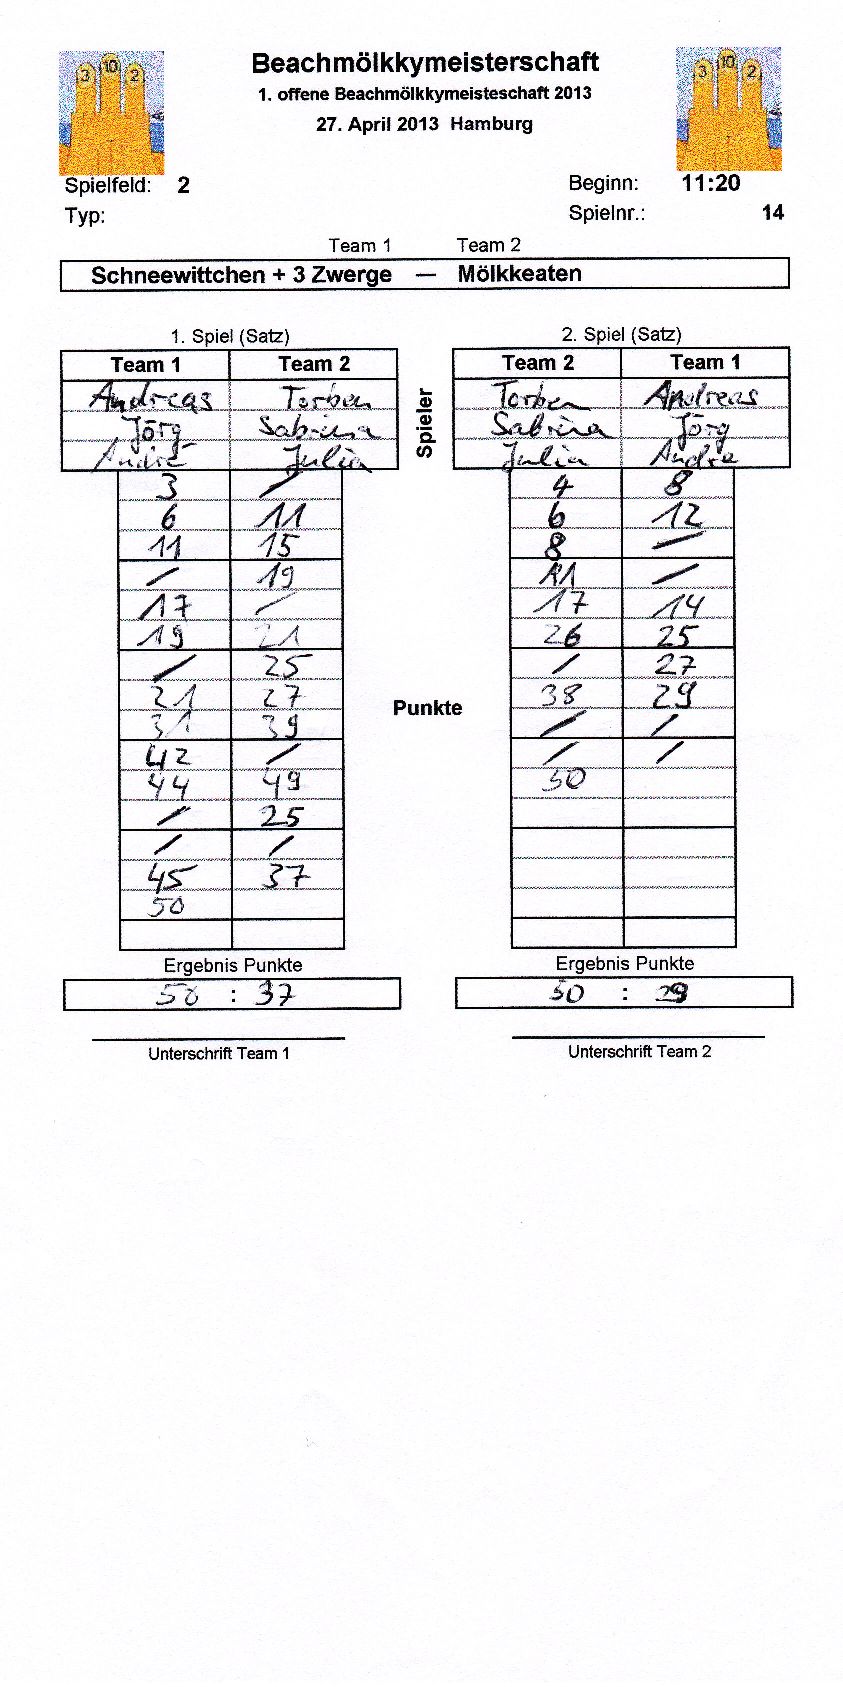 3 10 2
3 10 2
Beachmölkkymeisterschaft
1. offene Beachmölkkymeisteschaft 2013
27. April 2013 Hamburg
Spielfeld: 2 Beginn: 11:20
Typ: Spielnr.: 14
Team 1 Team 2
Schneewittchen + 3 Zwerge — Mölkkeaten
1. Spiel (Satz) 2. Spiel (Satz)
Team 1 Team 2 Team 2 Team 1
Spieler
Andreas Torben Torben Andreas
Jörg Sabrina Sabrina Jörg
André Julia Julia Andre
3 / 4 8
6 11 6 12
11 15 8 /
/ 19 11 /
17 / 17 14
19 21 26 25
/ 25 / 27
21 27 38 29
Punkte
31 39 / /
42 / / /
44 49 50
/ 25
/ /
45 37
50
Ergebnis Punkte Ergebnis Punkte
50 : 37 50 : 29
Unterschrift Team 1 Unterschrift Team 2